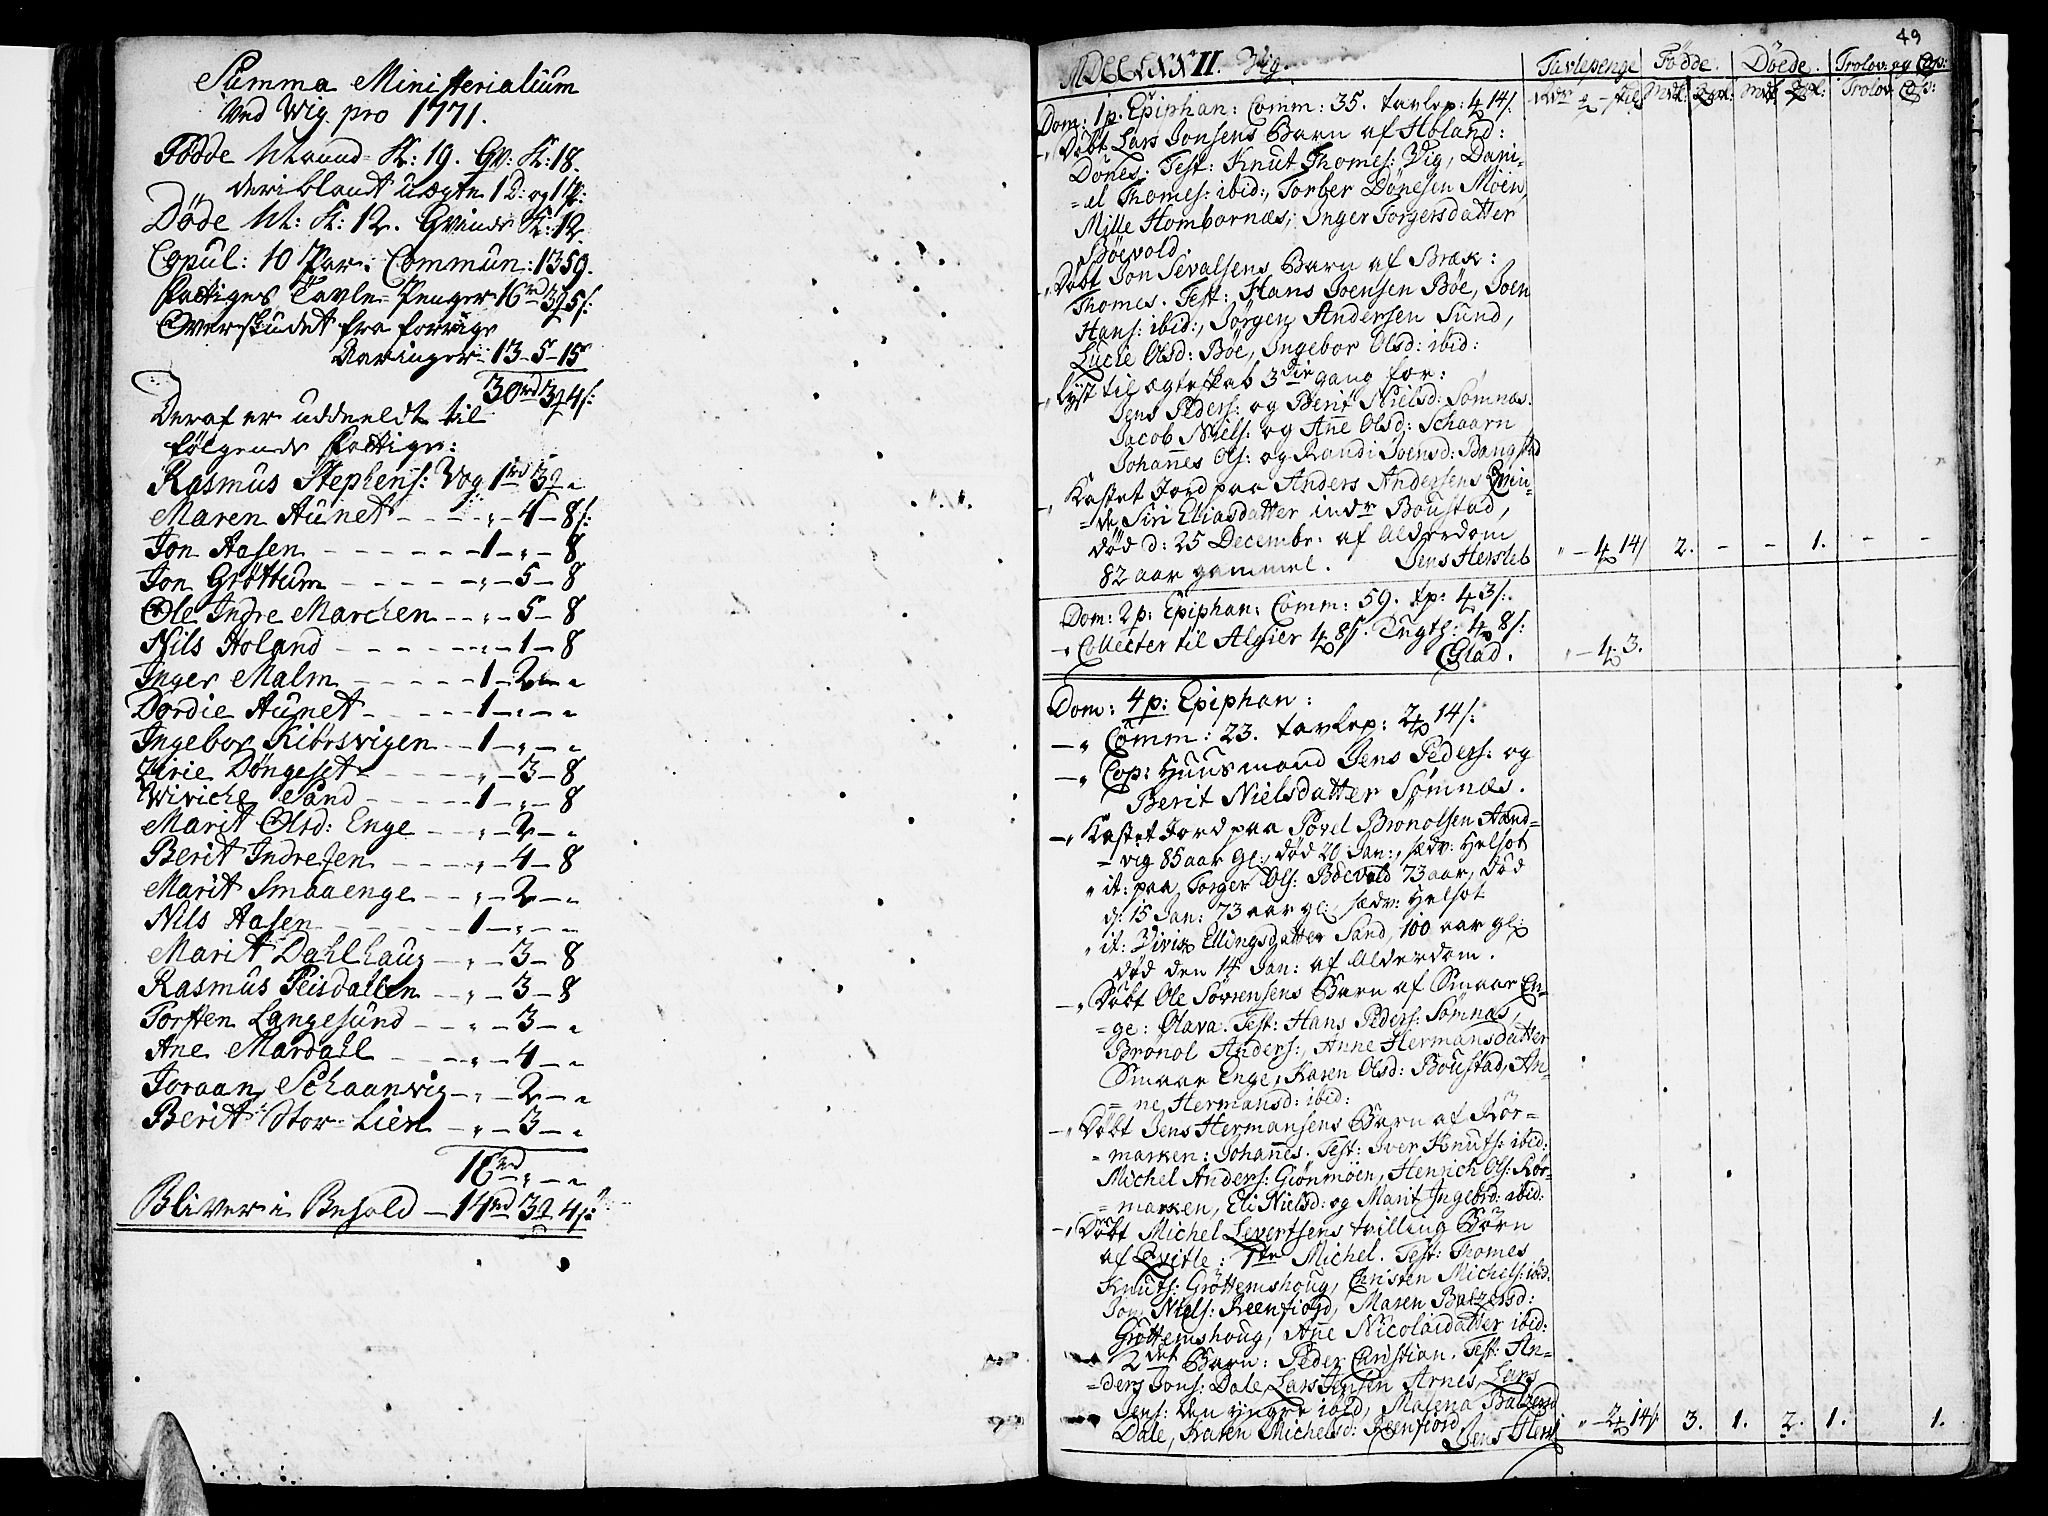 Summa Ministerialium
ved Wig pro 1771.
Födde M. K: 19. Qv: K: 18.
deriblandt uægte 1 D: og 1 P:
Døde M: K: 12. Qvinde K: 12.
Copul: 10 Par. Commun: 1359.
Fattiges Tavle-Penger 16 rd 3 q 5 s:
Overskudet fra forrige
Aaringer 13 - 5 - 15
30 rd 3 q 4 s:
Deraf er uddeeldt til
følgende Fattige:
Rasmus Stephens: Vog 1 rd 3 q „
Maren Aunet - - - „ - 4 - 8 s:
Jon Aasen - - - - - 1 - „ - 8
Jon Grøttum - - - - „ - 5 - 8
Ole Indre Marchen - - „ - 5 - 8
Nils Holand - - - - „ - 1 - 8
Inger Malm - - - - 1 - 2 - „
Dordie Aunet - - - - 1 - „ - „
Ingebor Kibrsvigen - - 1 - „ - „
Zirie Döngeset - - - „ - 3 - 8
Wiviche Sand - - - - 1 - „ - 8
Marit Olsd: Enge - - „ - 2 - „
Berit Indresen - - - „ - 4 - 8
Marit Smaaenge - - „ - 2 - „
Nils Aasen - - - - 1 - „ - „
Marit Dahlhaug - - „ - 3 - 8
Rasmus Peisdallen - - „ - 3 - 8
Torsten Langesund - - „ - 3 - „
Ane Mardall - - - „ - 4 - „
Joraan Schaanvig - „ - 2 - „
Berit Stor-Lien - „ - 3 - „
16 rd „ - „
Bliver i Behold - 14 rd 3 q 4 s:
49
MDCCLXXII. Vig. Tavlepenge Födde. Döede. Trolov: og Cop:
Mdk: Qvk: Mdk: Qvk: Trolov Cop:
Dom: 1 p. Epiphan: Comm: 35. tavlep: 4 14 s:
- Döbt Lars Jonsens Barn af Holand:
Dönes. Test: Knut Thomes: Vig, Dani-
-el Thomes: ibid:, Torber Dönesen Möen,
Mille Hombornæs, Inger Torgersdatter
Böevold.
- Döbt Jon Sevalsens Barn af Bræk:
Thomes. Test: Hans Joensen Böe, Joen
Hans: ibid:, Jörgen Andersen Sund,
Lucie Olsd: Böe, Ingebor Olsd: ibid:
- Lyst til ægteskab 3die gang for:
Jens Peders: og Berit Nielsd: Sömnæs.
Jacob Niels: og Añe Olsd: Schaarn
Johañes Ols: og Randi Joensd: Bangstad
- Kastet Jord paa Anders Andersens Qvin-
-de Siri Eliasdatter indr Boustad,
död d: 25 Decembr: af Alderdom
82 aar gammel. Jens Hersleb „ - 4 14/ 2. - - 1. - -
Dom: 2 p: Epiphan: Comm: 59. tp: 4 3 s:
- Collecter til Algier 4 8 s. Tugth: 4 8 s:
Glad. „ - 4 3.
Dom: 4 p: Epiphan:
- „ Comm: 23. tavlep: 2 14 s:
- „ Cop: Huusmand Jens Peders: og
Berit Nielsdatter Sömnæs.
- „ Kastet Jord paa Povel Bronolsen Aand-
-vig 85 aar gl:, död 20 Jan:, sædv: Helsot
„ it: paa Torger Ols: Böevold 73 aar, död
d: 15 Jan: 73 aar gl:, sædv: Helsot
„ it: Vivix Ellingsdatter Sand, 100 aar gl:
död den 14 Jan: af Alderdom.
- „ Döbt Ole Sörensens Barn af Smaar En-
-ge: Olava. Test: Hans Peders: Sömnæs,
Brönol Anders:, Anne Hermansdatter
Smaar Enge, Karen Olsd: Boustad, An-
-ne Hermansd: ibid:
- „ Döbt Jens Hermansens Barn af Rör-
-marken: Johañes. Test: Iver Knuts: ibid:
Michel Anders: Giönmöen, Henrich Ols: Rör-
-marken, Eli Nielsd: og Marit Ingebrd: ibid:
- „ Döbt Michel Levertsens tvilling Börn
af Qvitle: 1te Michel. Test: Thomes
Knuts: Gröttemshoug, Christen Michels: ibid.
Jon Niels: Reenfiord, Maren Balzersd:
Gröttemshoug, Añe Nicolaidatter ibid:
2det Barn: Peder Christian. Test: An-
-ders Jons: Dale, Lars Jensen Arnes, Lars
Jens: den yngre ibid, Malena Balzersd
Dale, Karen Michelsd: Reenfiord
Jens Hersl „ - 2 14/ 3. 1. 2. 1. 1.